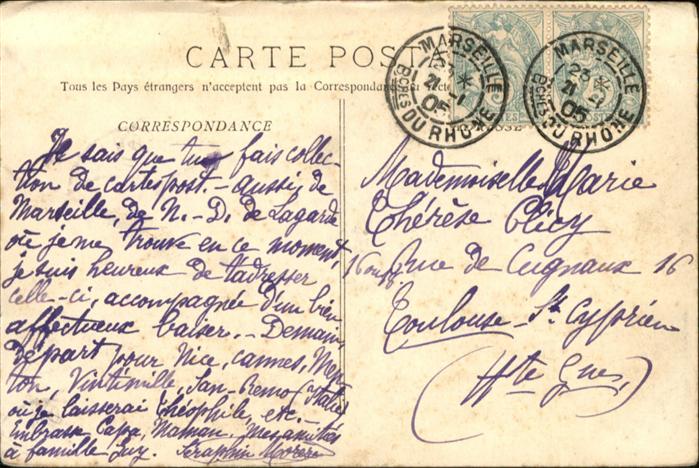 CARTE POSTALE
Tous les Pays étrangers n'acceptent pas la Correspondance au recto
CORRESPONDANCE
Je sais que tu fais collec-
tion de cartes post. - aussi, de
Marseille, de N.-D. de Lagarde
où je me trouve en ce moment,
je suis heureux de t'adresser
celle-ci, accompagnée d'un bien
affectueux baiser. - Demain,
départ pour Nice, Cannes, Men-
ton, Vintimille, San-Remo (Italie)
où je laisserai Théophile, etc. -
Embrasse Papa, Maman, Mes amitiés
à famille Luz. Séraphin
MARSEILLE
23 *
21 -1
05
BCHES DU RHONE
MARSEILLE
23 *
21 -1
05
BCHES DU RHONE
Mademoiselle Marie
Thérèse
16 Rue de Cugnaux 16
Toulouse - St Cyprien
(Hte Gne)